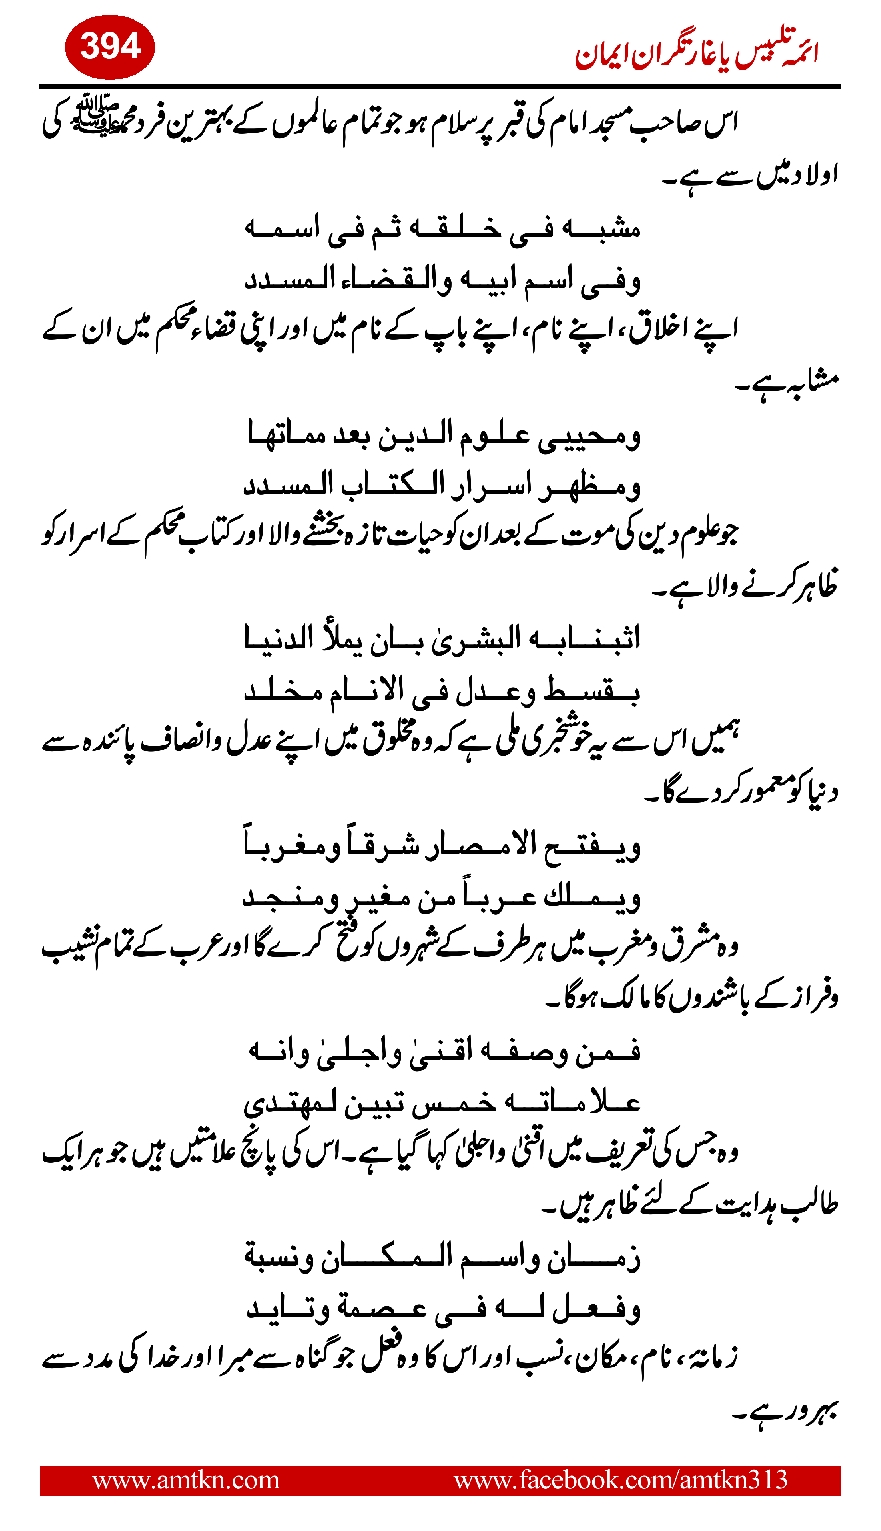 394
ائمہ تلبیس یا غارتگران ایمان
اس صاحب مسجد امام کی قبر پر سلام ہو جو تمام عالموں کے بہترین فرد محمد ﷺ کی
اولاد میں سے ہے۔
مشبہ فی خلقہ ثم فی اسمہ
وفی اسم ابیہ والقضاء المسدد
اپنے اخلاق، اپنے نام، اپنے باپ کے نام میں اور اپنی قضاء محکم میں ان کے
مشابہ ہے۔
ومحیی علوم الدین بعد مماتها
ومظهر اسرار الکتاب المسدد
جو علوم دین کی موت کے بعد ان کو حیات تازہ بخشنے والا اور کتاب محکم کے اسرار کو
ظاہر کرنے والا ہے۔
اثبنابہ البشریٰ بان یملأ الدنیا
بقسط وعدل فی الانام مخلد
ہمیں اس سے یہ خوشخبری ملی ہے کہ وہ مخلوق میں اپنے عدل وانصاف پائندہ سے
دنیا کو معمور کر دے گا۔
ویفتح الامصار شرقاً ومغرباً
ویملك عرباً من مغیر ومنجد
وہ مشرق ومغرب میں ہر طرف کے شہروں کو فتح کرے گا اور عرب کے تمام نشیب
وفراز کے باشندوں کا مالک ہوگا۔
فمن وصفہ اقنیٰ واجلیٰ وانہ
علاماتہ خمس تبین لمهتدی
وہ جس کی تعریف میں اقنیٰ واجلیٰ کہا گیا ہے۔ اس کی پانچ علامتیں ہیں جو ہر ایک
طالب ہدایت کے لئے ظاہر ہیں۔
زمان واسم المکان ونسبة
وفعل لہ فی عصمة وتاید
زمانہ، نام، مکان، نسب اور اس کا وہ فعل جو گناہ سے مبرا اور خدا کی مدد سے
بہرور ہے۔
www.amtkn.com
www.facebook.com/amtkn313